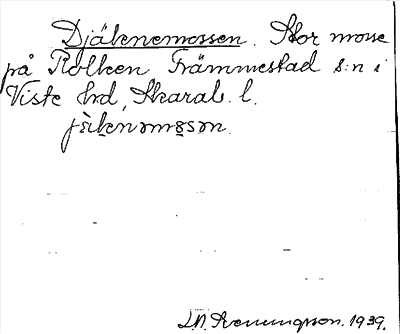 Djäknemossen. Stor mosse
på Rolken Främmestad s:n i
Viste hrd, Skarab. l.
jäknəmosən.
1939.